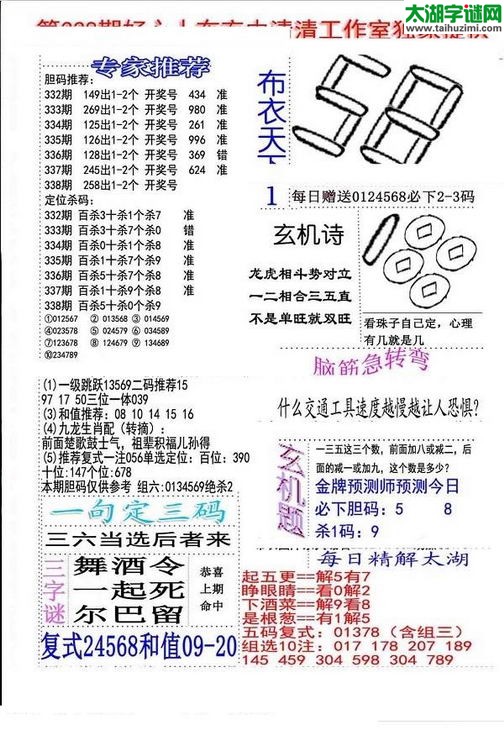 太湖字谜网
www.taihuzimi.com
清工作室独家提供
专家推荐
胆码推荐:
332期 149出1-2个 开奖号 434 准
333期 269出1-2个 开奖号 980 准
334期 125出1-2个 开奖号 261 准
335期 126出1-2个 开奖号 996 准
336期 128出1-2个 开奖号 369 错
337期 245出1-2个 开奖号 624 准
338期 258出1-2个 开奖号
定位杀码:
332期 百杀3十杀1个杀7 准
333期 百杀3十杀7个杀0 错
334期 百杀3十杀0个杀9 准
335期 百杀4十杀1个杀8 准
336期 百杀1十杀4个杀8 准
337期 百杀8十杀9个杀9 准
338期 百杀5十杀0个杀9
①012567 ②013568 ③014569
④023578 ⑤024579 ⑥034589
⑦123678 ⑧124679 ⑨134689
⑩234789
布衣天下
58
1 每日赠送0124568必下2-3码
玄机诗
龙虎相斗势对立
一二相合三五直
不是单旺就双旺
看珠子自己定，心理
有几就是几
脑筋急转弯
什么交通工具速度越慢越让人恐惧?
(1)一级跳跃13569二码推荐15
97 17 50三位一体039
(3)和值推荐: 08 10 14 15 16
(4)九龙生肖配（转摘）:
前面楚歌鼓士气，祖辈积福儿孙得
(5)推荐复式一注056单选定位: 百位: 390
十位:147个位:678
本期胆码仅供参考 组六:0134569绝杀2
玄机题
一三五这三个数，前面加八或减二，后
面的减一或加九，这个数是多少?
金牌预测师预测今日
必下胆码: 5 8
杀1码: 9
一句定三码
三六当选后者来
三字谜
舞酒令
一起死
尔巴留
恭喜
上期
命中
复式24568和值09-20
每日精解太湖
起五更==解5有7
睁眼睛==看0解2
下酒菜==解9看8
是根葱==有1解5
五码复式: 01378（含组三）
组选10注: 017 178 207 189
145 459 304 598 304 789